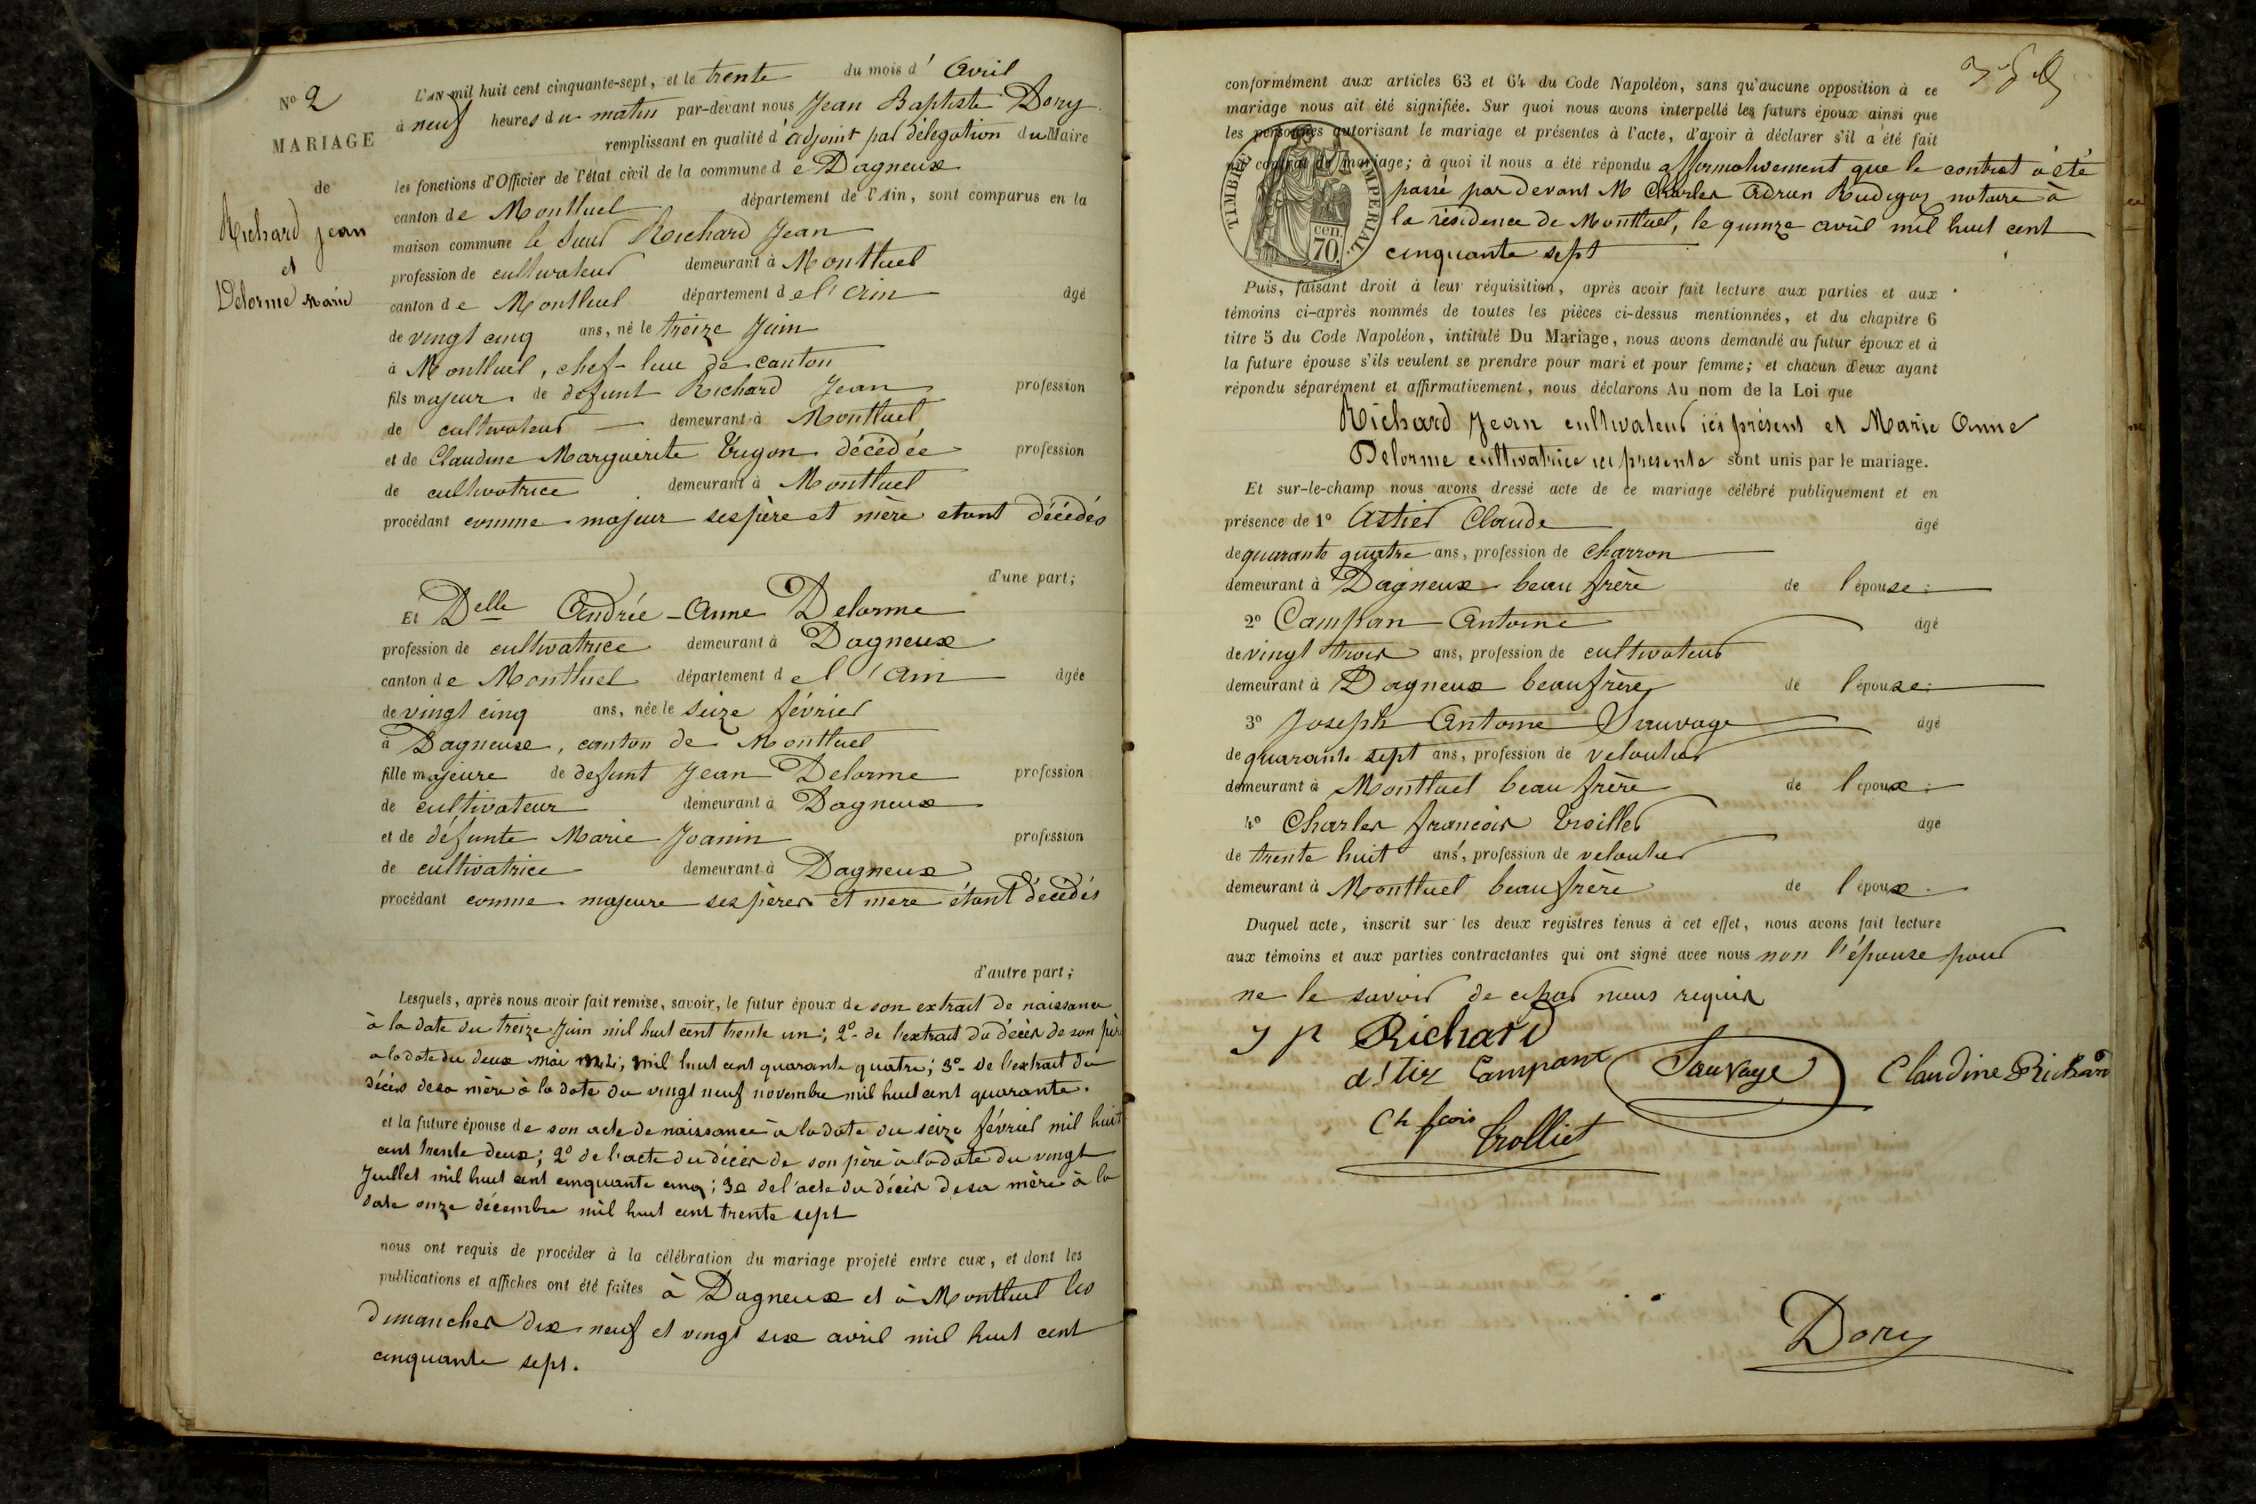 No 2
MARIAGE
de
Richard Jean
et
Delorme Marie
L'AN mil huit cent cinquante-sept, et le trente du mois d'Avril
à neuf heures du matin par-devant nous Jean Baptiste Dory
remplissant en qualité d'adjoint par délégation du Maire
les fonctions d'Officier de l'état civil de la commune de Dagneux
canton de Montluel département de l'Ain, sont comparus en la
maison commune le sieur Richard Jean
profession de cultivateur demeurant à Montluel
canton de Montluel département de l'Ain âgé
de vingt cinq ans, né le treize Juin
à Montluel, chef-lieu de canton
fils majeur de defunt Richard Jean profession
de cultivateur demeurant à Montluel
et de Claudine Marguerite décédée profession
de cultivatrice demeurant à Montluel
procédant comme majeur ses père et mère etant décédés
d'une part;
Et Delle Andrée-Anne Delorme
profession de cultivatrice demeurant à Dagneux
canton de Montluel département de l'Ain âgée
de vingt cinq ans, née le seize février
à Dagneux, canton de Montluel
fille majeure de defunt Jean Delorme profession
de cultivateur demeurant à Dagneux
et de défunte Marie Joanin profession
de cultivatrice demeurant à Dagneux
procédant comme majeure ses pères et mère étant décédés
d'autre part;
Lesquels, après nous avoir fait remise, savoir, le futur époux de son extrait de naissance
à la date du treize Juin mil huit cent trente un; 2o de l'extrait du décès de son père
a la date du deux mai mil huit cent quarante quatre; 3o de l'extrait du
décès de sa mère à la date du vingt neuf novembre mil huit cent quarante.
et la future épouse de son acte de naissance à la date du seize février mil huit
cent trente deux; 2o de l'acte du décès de son père à la date du vingt
Juillet mil huit cent cinquante cinq; 3o de l'acte du décès de sa mère à la
date onze décembre mil huit cent trente sept
nous ont requis de procéder à la célébration du mariage projeté entre eux, et dont les
publications et affiches ont été faites à Dagneux et à Montluel les
dimanches dix-neuf et vingt six avril mil huit cent
cinquante sept.
conformément aux articles 63 et 64 du Code Napoléon, sans qu'aucune opposition à ce
mariage nous ait été signifiée. Sur quoi nous avons interpellé les futurs époux ainsi que
les personnes autorisant le mariage et présentes à l'acte, d'avoir à déclarer s'il a été fait
un contrat de mariage; à quoi il nous a été répondu affirmativement que le contrat a été
passé par devant M Charles Adrien notaire à
la résidence de Montluel, le quinze avril mil huit cent
cinquante sept
TIMBRE IMPERIAL
cen.
70.
Puis, faisant droit à leur réquisition, après avoir fait lecture aux parties et aux
témoins ci-après nommés de toutes les pièces ci-dessus mentionnées, et du chapitre 6
titre 5 du Code Napoléon, intitulé Du Mariage, nous avons demandé au futur époux et à
la future épouse s'ils veulent se prendre pour mari et pour femme; et chacun d'eux ayant
répondu séparément et affirmativement, nous déclarons Au nom de la Loi que
Richard Jean cultivateur ici présent et Marie Anne
Delorme cultivatrice ici presente sont unis par le mariage.
Et sur-le-champ nous avons dressé acte de ce mariage célébré publiquement et en
présence de 1o Astier Claude âgé
de quarante quatre ans, profession de Charron
demeurant à Dagneux beau frère de l'épouse;
2o Campan Antoine âgé
de vingt trois ans, profession de cultivateur
demeurant à Dagneux beaufrère de l'épouse;
3o Joseph Antoine Sauvage âgé
de quarante sept ans, profession de veloutier
demeurant à Montluel beau frère de l'époux;
4o Charles françois âgé
de trente huit ans, profession de veloutier
demeurant à Montluel beau frère de l'époux.
Duquel acte, inscrit sur les deux registres tenus à cet effet, nous avons fait lecture
aux témoins et aux parties contractantes qui ont signé avec nous non l'épouse pour
ne le savoir de ce par nous requis
Richard
Campant Sauvage Claudine Richard
Ch fcois Trolliet
Dory